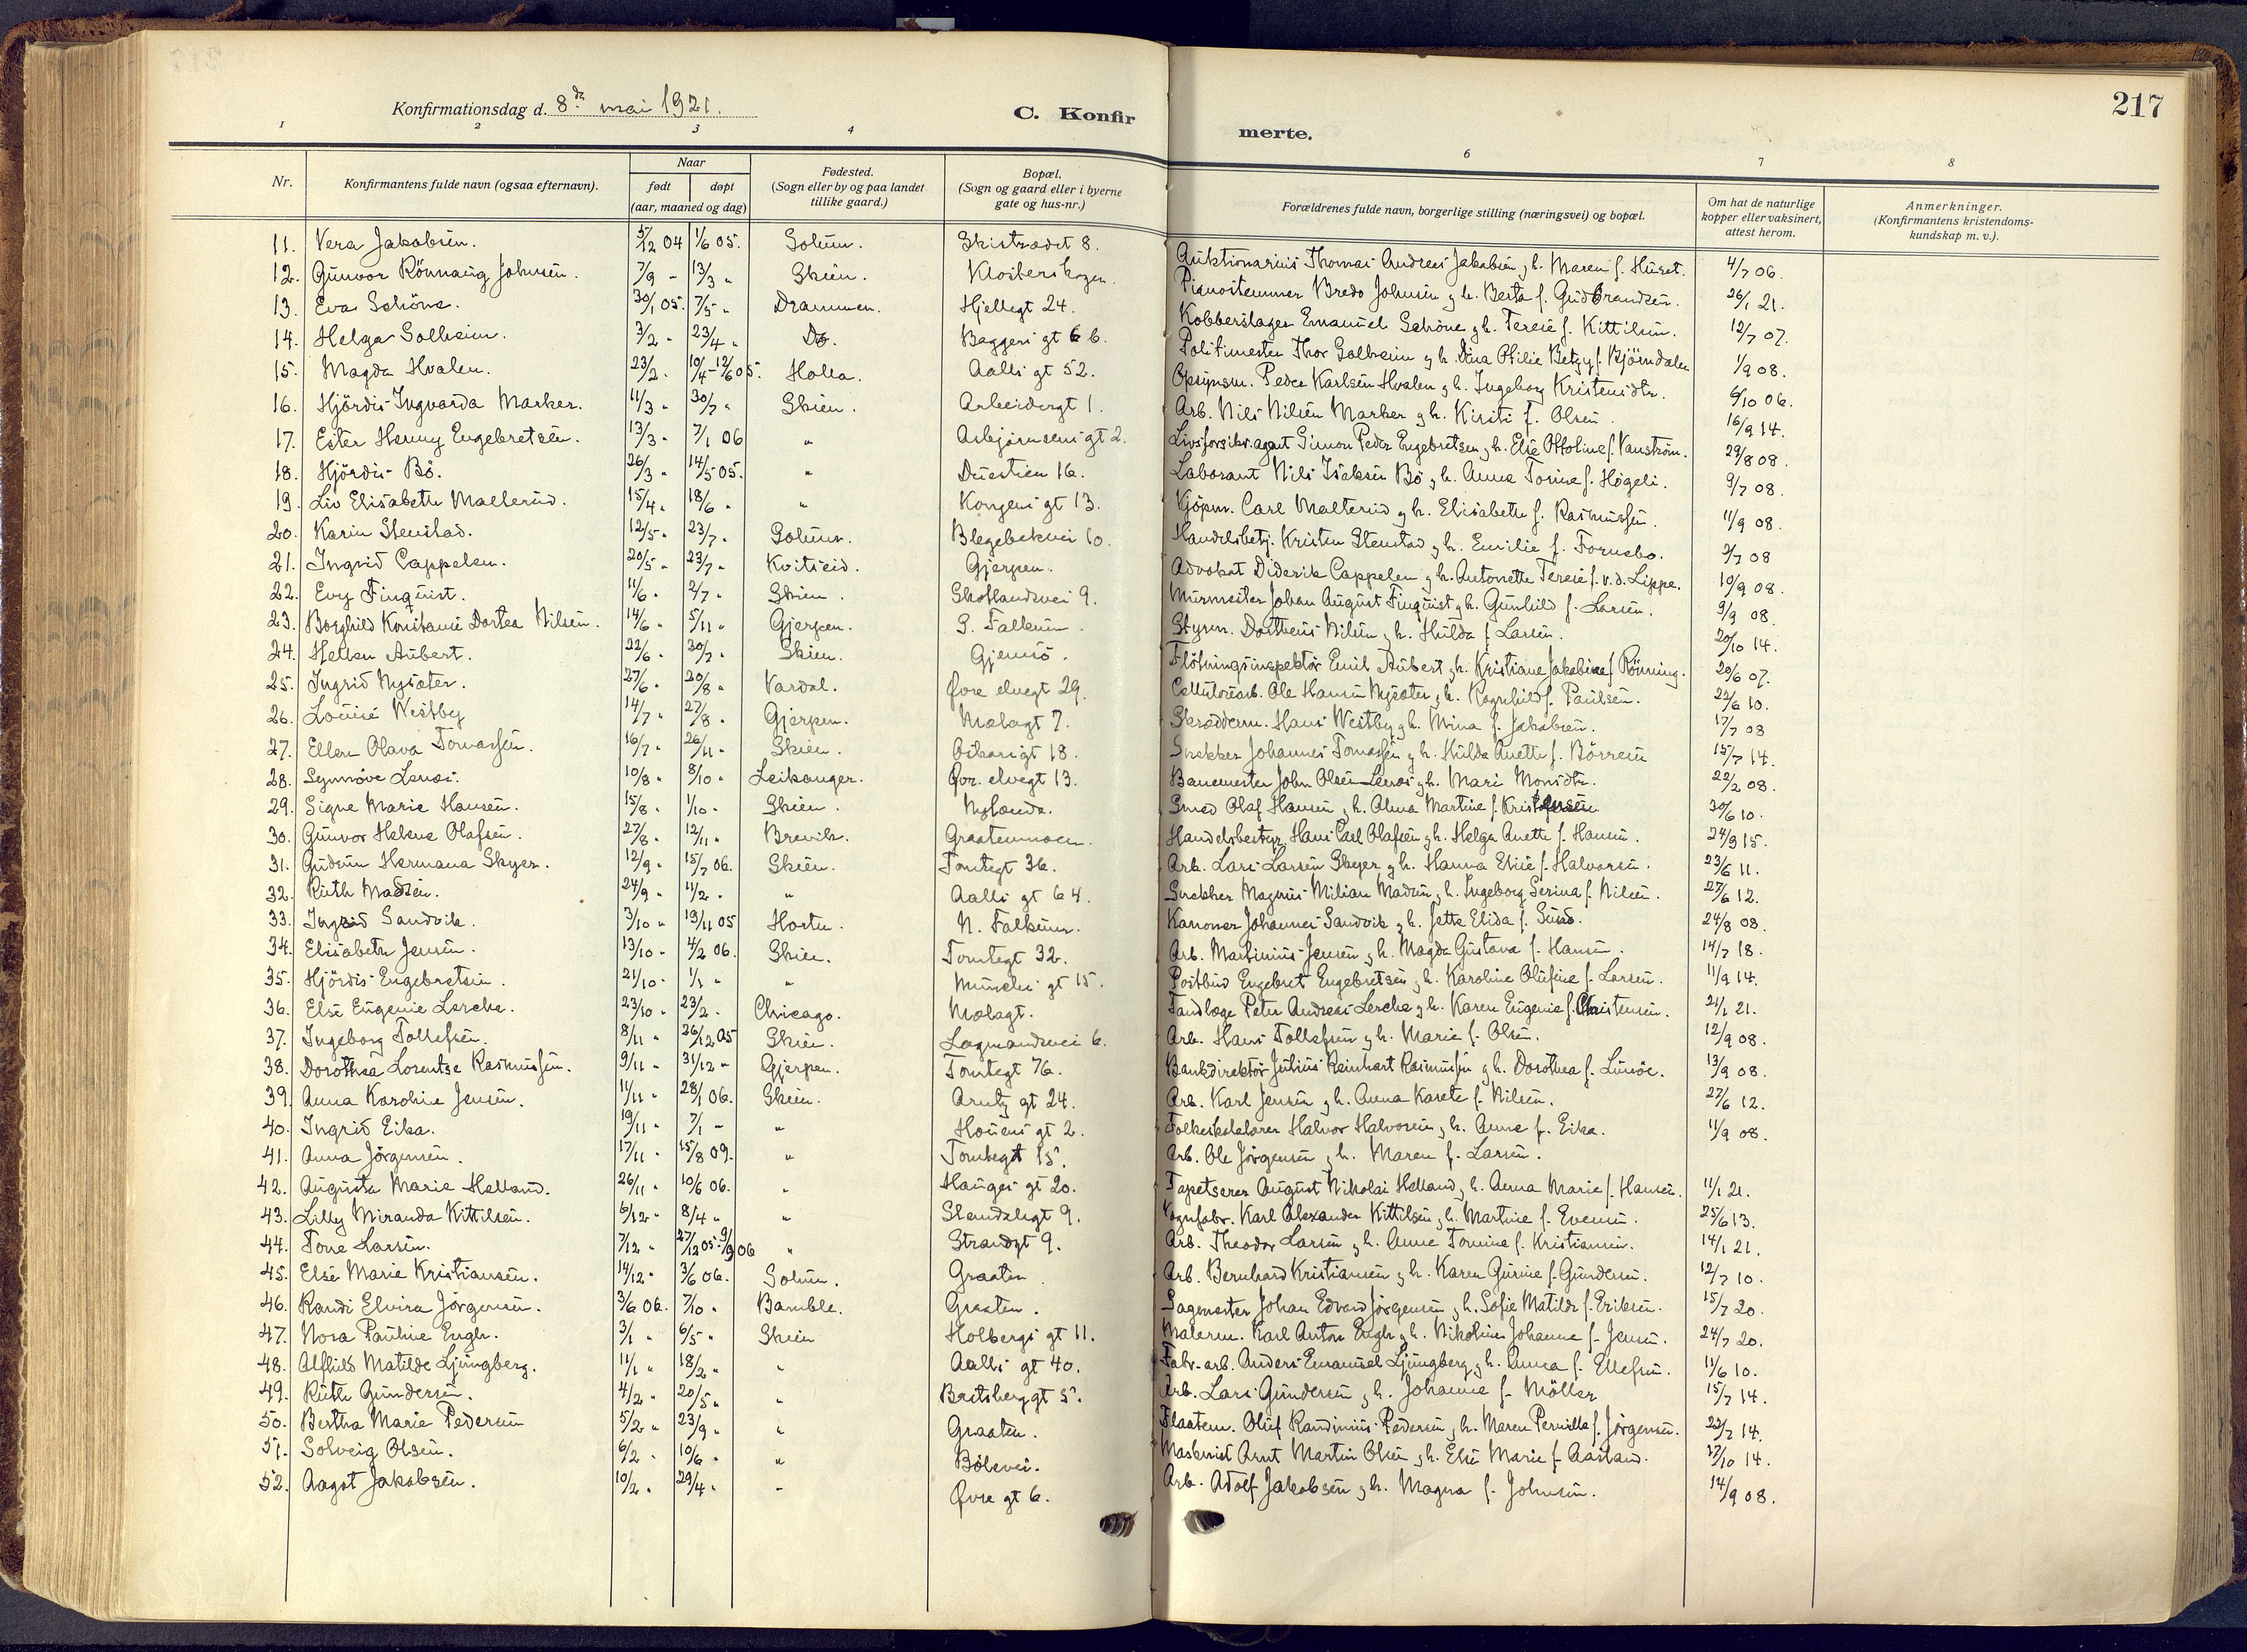 217
Konfirmationsdag d. 8de mai 1921.
C. Konfirmerte.
1 2 3 4 6 7 8
Nr. Konfirmantens fulde navn (ogsaa efternavn). Naar født døpt (aar, maaned og dag) Fødested. (Sogn eller by og paa landet tillike gaard.) Bopæl. (Sogn og gaard eller i byerne gate og hus-nr.) Forældrenes fulde navn, borgerlige stilling (næringsvei) og bopæl. Om hat de naturlige kopper eller vaksinert, attest herom. Anmerkninger. (Konfirmantens kristendomskundskap m. v.).
11. Vera Jakobsen. 5/12 04 1/6 05. Solum. Skistrædet 8. Auktionarius Thomas Andreas Jakobsen g.h. Maren f. Huset. 4/7 06.
12. Gunvor Rönnaug Johnsen. 7/9 " 13/3 " Skien. Klosterskogen. Pianostemmer Bredo Johnsen g.h. Berta f. Gudbrandsen. 26/1 21.
13. Eva Schöne. 30/1 05. 7/5 " Drammen. Hjellegt 24. Kobberslager Emanuel Schöne g.h. Terese f. Kittilsen. 12/7 07.
14. Helga Solheim. 3/2 " 23/4 " Do. Baggers gt 6 b. Politimester Thor Solheim g.h. Dina Otilie Betzy f. Björndalen 1/9 08.
15. Magda Hvalen. 23/2 " 10/4-12/6 05. Holla. Aalls gt 52. Opsynsm. Peder Karlsen Hvalen g.h. Ingeborg Kristensdtr. 6/10 06.
16. Hjördis Ingvarda Marker. 11/3 " 30/7 " Skien. Arbeidergt 1. Arb. Nils Nilsen Marker g.h. Kirsti f. Olsen. 16/9 14.
17. Ester Henny Engebretsen. 13/3 " 7/1 06 " Asbjörnsens gt 2. Livsforsikr.agent Simon Peder Engebretsen g.h. Else Ottoline f. Vanström. 29/8 08.
18. Hjördis Bö. 26/3 " 14/5 05. " Duestien 16. Laborant Nils Isaksen Bö g.h. Anne Torine f. Högeli. 9/7 08.
19. Liv Elisabeth Mallerud. 15/4 " 18/6 " " Kongens gt 13. Kjöpm. Carl Mallerud g.h. Elisabeth f. Rasmussen. 11/9 08.
20. Karin Stenstad. 12/5 " 23/7 " Solum. Blegebekvei 10. Handelsbetj. Kristen Stenstad g.h. Emilie f. Fornebo. 2/7 08
21. Ingrid Cappelen. 20/5 " 23/7 " Kvitseid. Gjerpen. Advokat Diderik Cappelen g.h. Antonette Terese f. v.d. Lippe. 10/9 08.
22. Evy Finquist. 11/6 " 2/7 " Skien. Skotlandsvei 9. Murmester Johan August Finquist g.h. Gunhild f. Larsen. 9/9 08.
23. Borghild Konstanse Dortea Nilsen. 14/6 " 5/11 " Gjerpen. S. Falkum. Styrm. Dortheus Nilsen g.h. Hulda f. Larsen. 20/10 14.
24. Hellen Aubert. 22/6 " 30/7 " Skien. Gjemsö. Flötningsinspektör Emil Aubert g.h. Kristiane Jakobine f. Rönning. 20/6 07.
25. Ingrid Nysæter. 27/6 " 20/8 " Vardal. Øvre elvegt 29. Cellulosearb. Ole Hansen Nysæter g.h. Ragnhild f. Paulsen. 22/6 10.
26. Louise Westby 14/7 " 27/8 " Gjerpen. Mælagt 7. Skrædderm. Hans Westby g.h. Mina f. Jakobsen. 17/7 08
27. Ellen Olava Tomassen. 16/7 " 26/11 " Skien. Oskars gt 18. Snekker Johannes Tomassen g.h. Hulda Anette f. Börresen 15/7 14.
28. Synnöve Lenæs. 10/8 " 8/10 " Leikanger. Øvr. elvegt 13. Banemester John Olsen Lenæs g.h. Mari Monsdtr. 22/2 08.
29. Signe Marie Hansen. 15/8 " 1/10 " Skien. Nylænde. Smed Olaf Hansen g.h. Anna Martine f. Kristensen 30/6 10.
30. Gunvor Helene Olafsen. 27/8 " 12/11 " Brevik. Graatenmoen. Handelsbestyr. Hans Carl Olafsen g.h. Helga Anette f. Hansen. 24/9 15.
31. Gudrun Hermana Skyer. 12/9 " 15/7 06. Skien. Tomtegt 36. Arb. Lars Larsen Skyer g.h. Hanna Elise f. Halvorsen. 23/6 11.
32. Ruth Madsen. 24/9 " 11/2 " " Aalls gt 64. Snekker Magnus Milian Madsen g.h. Ingeborg Serina f. Nilsen. 27/6 12.
33. Ingrid Sandvik. 3/10 " 19/11 05 Horten. N. Falkum. Kanoner Johannes Sandvik g.h. Jette Elida f. Sund. 24/8 08.
34. Elisabeth Jensen. 13/10 " 4/2 06. Skien. Tomtegt 32. Arb. Martinius Jensen g.h. Magda Gustava f. Hansen. 14/7 18.
35. Hjördis Engebretsen. 21/10 " 1/1 " " Munchs gt 15. Postbud Engebret Engebretsen g.h. Karoline Olufine f. Larsen. 11/9 14.
36. Else Eugenie Lerche. 23/10 " 23/2 " Chicago. Mælagt. Tandlæge Peter Andreas Lerche g.h. Karen Eugenie f. Christensen. 21/1 21.
37. Ingeborg Tollefsen. 8/11 " 26/12 05 Skien. Lagmandsvei 6. Arb. Hans Tollefsen g.h. Marie f. Olsen. 12/9 08.
38. Dorothea Lorentse Rasmussen. 9/11 " 31/12 " Gjerpen. Tomtegt 76. Bankdirektör Julius Reinhart Rasmussen g.h. Dorothea f. Lunöe. 13/9 08.
39. Anna Karoline Jensen. 11/11 " 28/1 06. Skien. Arntz gt 24. Arb. Karl Jensen g.h. Anna Kasete f. Nilsen. 27/6 12.
40. Ingrid Eika. 19/11 " 7/1 " " Houens gt 2. Folkeskolelærer Halvor Halvorsen g.h. Anne f. Eika. 11/9 08.
41. Anna Jörgensen. 17/11 " 15/8 09. " Tomtegt 15. Arb. Ole Jörgensen g.h. Maren f. Larsen.
42. Augusta Marie Helland. 26/11 " 10/6 06. " Hauges gt 20. Tapetserer August Nikolai Helland g.h. Anna Marie f. Hansen. 11/1 21.
43. Lilly Miranda Kittilsen. 6/12 " 8/4 " " Slemdalsgt 9. Vognfabr. Karl Alexander Kittilsen g.h. Martine f. Evensen. 25/6 13.
44. Tone Larsen. 7/12 " 27/12 05-9/9 06 " Strandgt 9. Arb. Theodor Larsen g.h. Anne Tomine f. Kristiansen. 14/1 21.
45. Else Marie Kristiansen. 14/12 " 3/6 06. Solum. Graaten. Arb. Bernhard Kristiansen g.h. Karen Gurine f. Gundersen. 12/7 10.
46. Randi Elvira Jörgensen. 3/6 06. 7/10 " Bamble. Graaten. Sagmester Johan Edvard Jörgensen g.h. Sofie Matilde f. Eriksen. 15/7 20.
47. Nora Pauline Engh. 3/1 " 6/5 " Skien Holbergs gt 11. Malerm. Karl Anton Engh g.h. Nikoline Johanne f. Jensen. 24/7 20.
48. Alfhild Matilde Ljungberg. 11/1 " 18/2 " " Aalls gt 40. Fabr-arb. Anders Emanuel Ljungberg g.h. Anna f. Ellefsen. 11/6 10.
49. Ruth Gundersen. 4/2 " 20/5 " " Bratsberggt 5. Arb. Lars Gundersen g.h. Johanne f. Möller 15/7 14.
50. Bertha Marie Pedersen 5/2 " 23/9 " " Graaten. Flaatem. Oluf Randinius Pedersen g.h. Maren Pernille f. Jörgensen. 22/7 14.
51. Solveig Olsen. 6/2 " 10/6 " " Bölevei. Maskinist Arnt Martin Olsen g.h. Else Marie f. Aasland. 17/10 14.
52. Aagot Jakobsen. 10/2 " 29/4 " " Øvre gt 6. Arb. Adolf Jakobsen g.h. Magna f. Johnsen. 14/9 08.